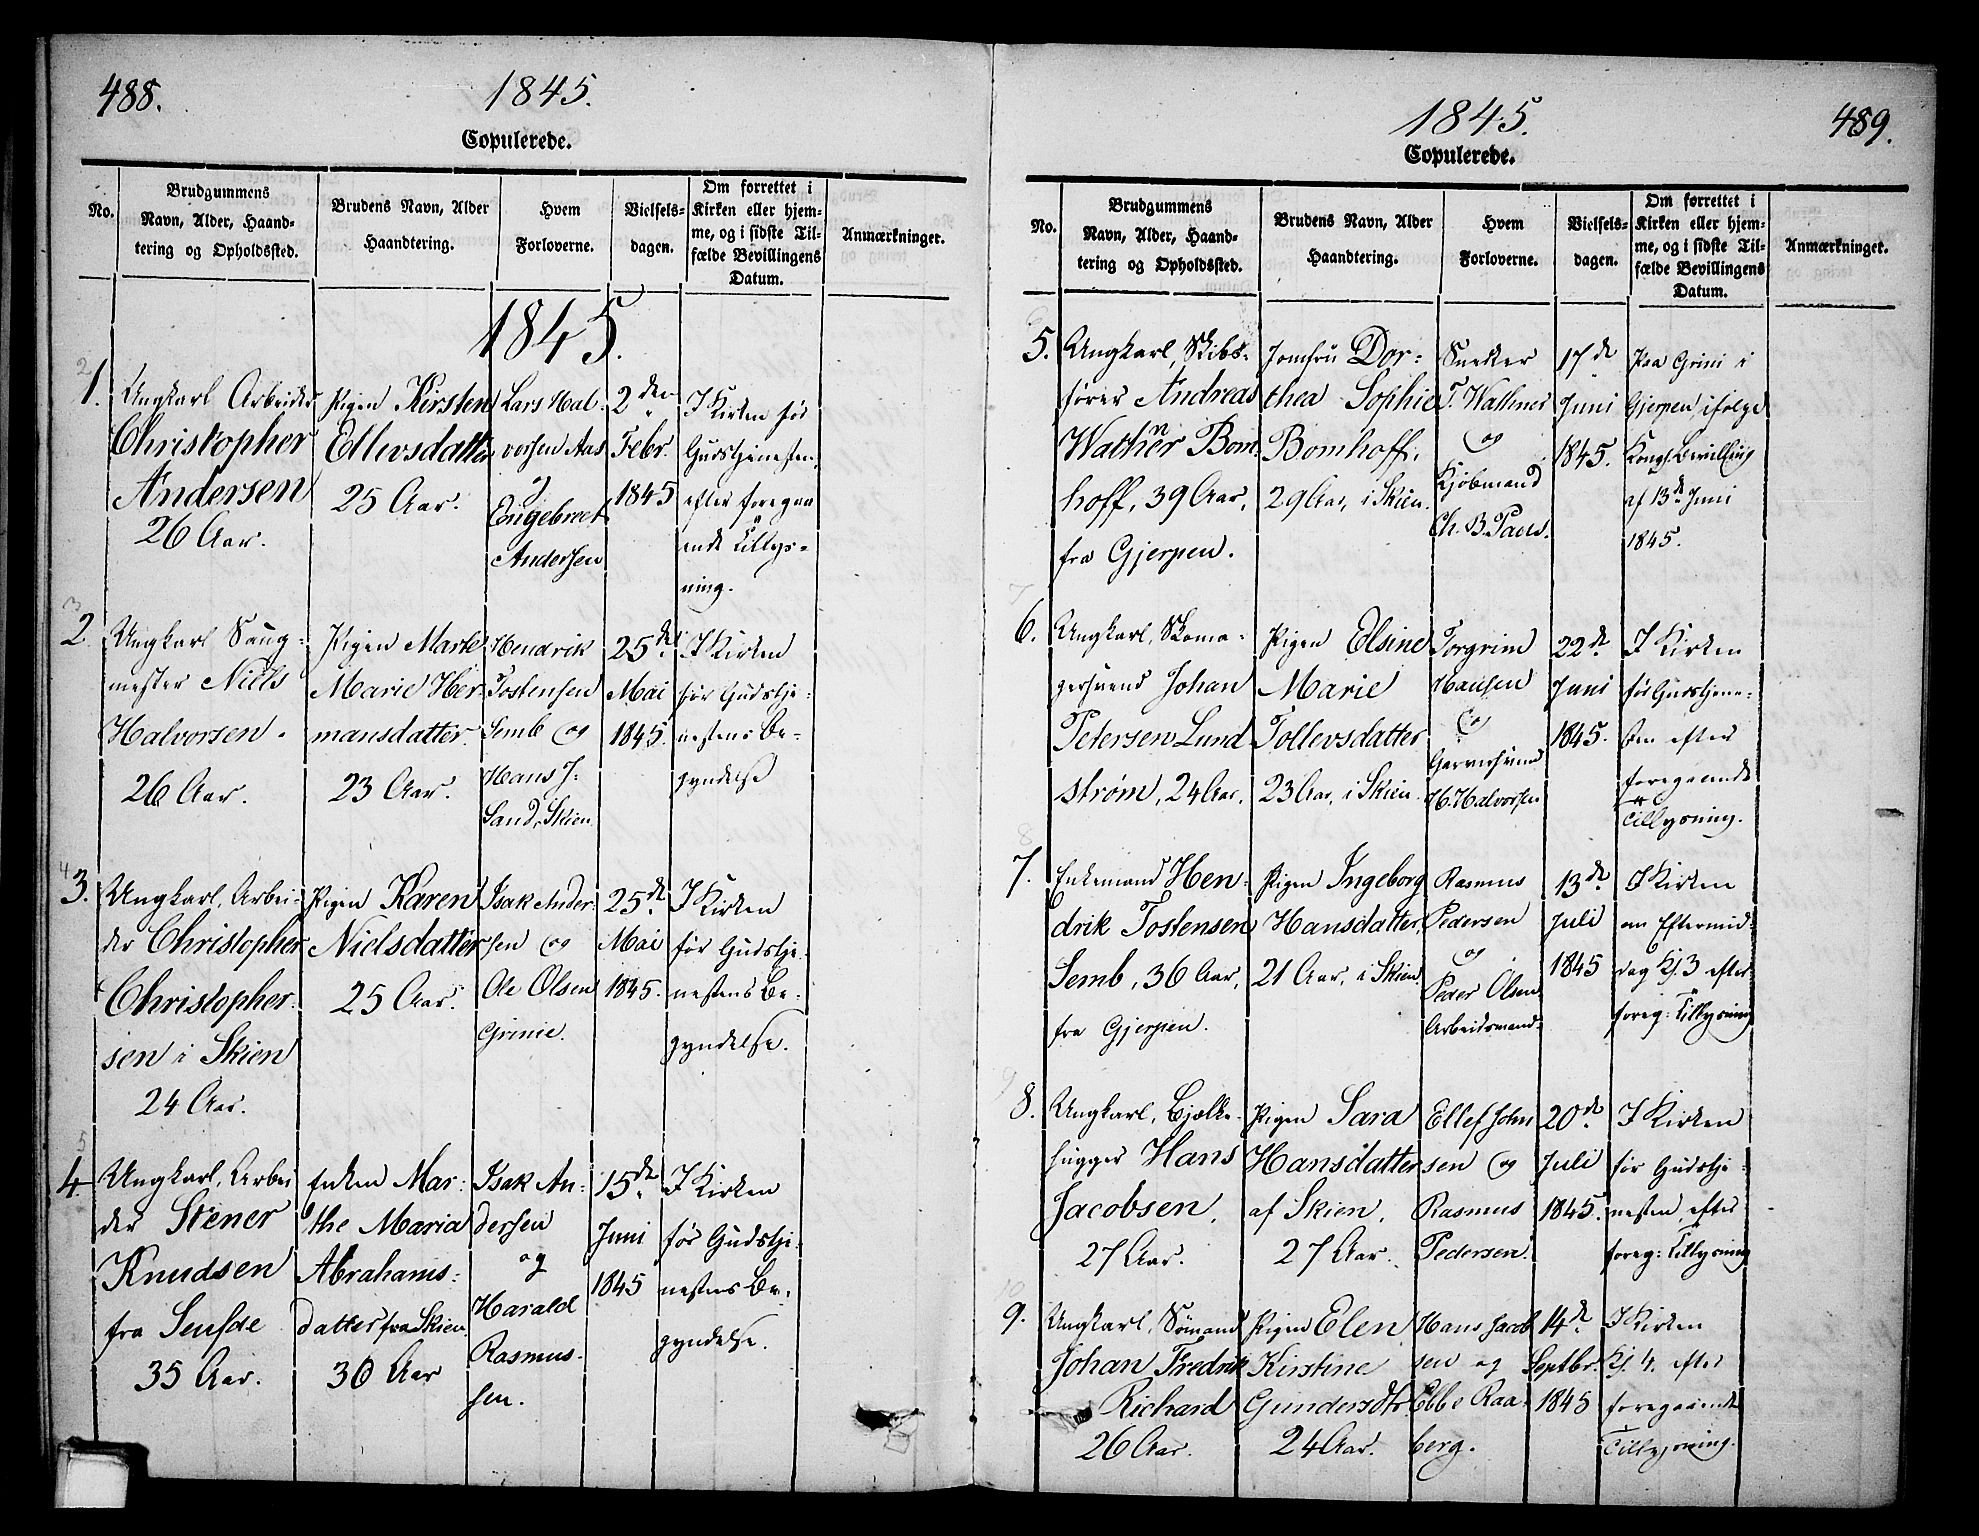 488.
1845.
Copulerede.
No.
Brudgummens
Navn, Alder, Haand-
tering og Opholdssted.
Brudens Navn, Alder
Haandtering.
Hvem
Forloverne.
Vielsels-
dagen.
Om forrettet i
Kirken eller hjem-
me, og i sidste Til-
fælde Bevillingens
Datum.
Anmærkninger.
1845.
1.
Ungkarl Arbeider
Christopher
Andersen
26 Aar.
Pigen Kirsten
Ellevsdatter
25 Aar.
Lars Hal-
vorsen Aas
Engebrect
Andersen
2den
Febr.
1845
I Kirken før
Gudstjenesten,
efter foregaa
ende Tillys-
ning.
2
Ungkarl Saug-
mester Niels
Halvorsen.
26 Aar.
Pigen Marte
Marie Her-
mansdatter.
23 Aar.
Hendrik
Tostensen
Semb og
Hans J.
Sand, Skien
25de
Mai
1845.
I Kirken
før Gudstje-
nestens Be-
gyndelse
3.
Ungkarl, Arbei-
der Christopher
Christopher-
sen i Skien
24 Aar.
Pigen Karen
Nielsdatter
25 Aar.
Isak Ander-
sen og
Ole Olsen
Grinie.
25de
Mai
1845.
I Kirken
før Gudstje-
nestens Be-
gyndelse.
4.
Ungkarl, Arbei
der Stener
Knudsen
fra Seufde
35 Aar.
Enken Mar-
the Maria
Abrahams-
datter fra Skien
30 Aar
Isak An-
dersen
og
Harald
Rasmus-
sen.
15de
Juni
1845
I Kirken
før Gudstje-
nestens Be-
gyndelse.
1845.
489.
Copulerede.
No.
Brudgummens
Navn, Alder, Haand-
tering og Opholdssted.
Brudens Navn, Alder
Haandtering.
Hvem
Forloverne.
Vielsels-
dagen.
Om forrettet i
Kirken eller hjem-
me, og i sidste Til-
fælde Bevillingens
Datum.
Anmærkninget.
5.
Ungkarl, Skibs-
fører Andreas
Wathner Bom
hoff, 39 Aar,
fra Gjerpen.
Jomfru Dor-
thea Sophie
Bomhoff,
29 Aar, i Skien.
Snekker
T. Wathner
og
Kjøbmand
Ch. B. Paus.
17de
Juni
1845.
Paa Grini i
Gjerpen, ifølge
Kongl. Bevilling
af 13de Juni
1845.
6.
Ungkarl, Skoma-
gersvend Johan
Petersen Lund
strøm, 24 Aar.
Pigen Elsine
Marie
Tollevsdatter
23 Aar, i Skien.
Torgrim
Hansen
og
Garversvend
H. Halvorsen
22de
Juni
1845.
I Kirken
før Gudstjene-
sten efter
foregaaende
Tillysning.
7.
Enkemand Hen-
drik Tostensen
Semb, 36 Aar,
fra Gjerpen.
Pigen Ingeborg
Hansdatter,
21 Aar, i Skien.
Rasmus
Pedersen
og
Peder Olsen
Arbeidsmand.
13de
Juli
1845
I Kirken
om Eftermid-
dag Kl. 3 efter
foreg: Tillysning
8.
Ungkarl, Bjælke-
hugger Hans
Jacobsen,
27 Aar.
Pigen Sara
Hansdatter
af Skien,
27 Aar.
Ellef John
sen og
Rasmus
Pedersen.
20de
Juli
1845.
I Kirken
før Gudstje-
nesten, efter
foreg: Tillysning
9.
Ungkarl, Sømand
Johan Fredrik
Richard
26 Aar.
Pigen Elen
Kirstine
Gundersdtr.
24 Aar.
Hans Jacob
sen og
Ebbe Raa-
berg.
14de
Septbr.
1845
I Kirken
Kl. 4. efter
foregaaende
Tillysning.